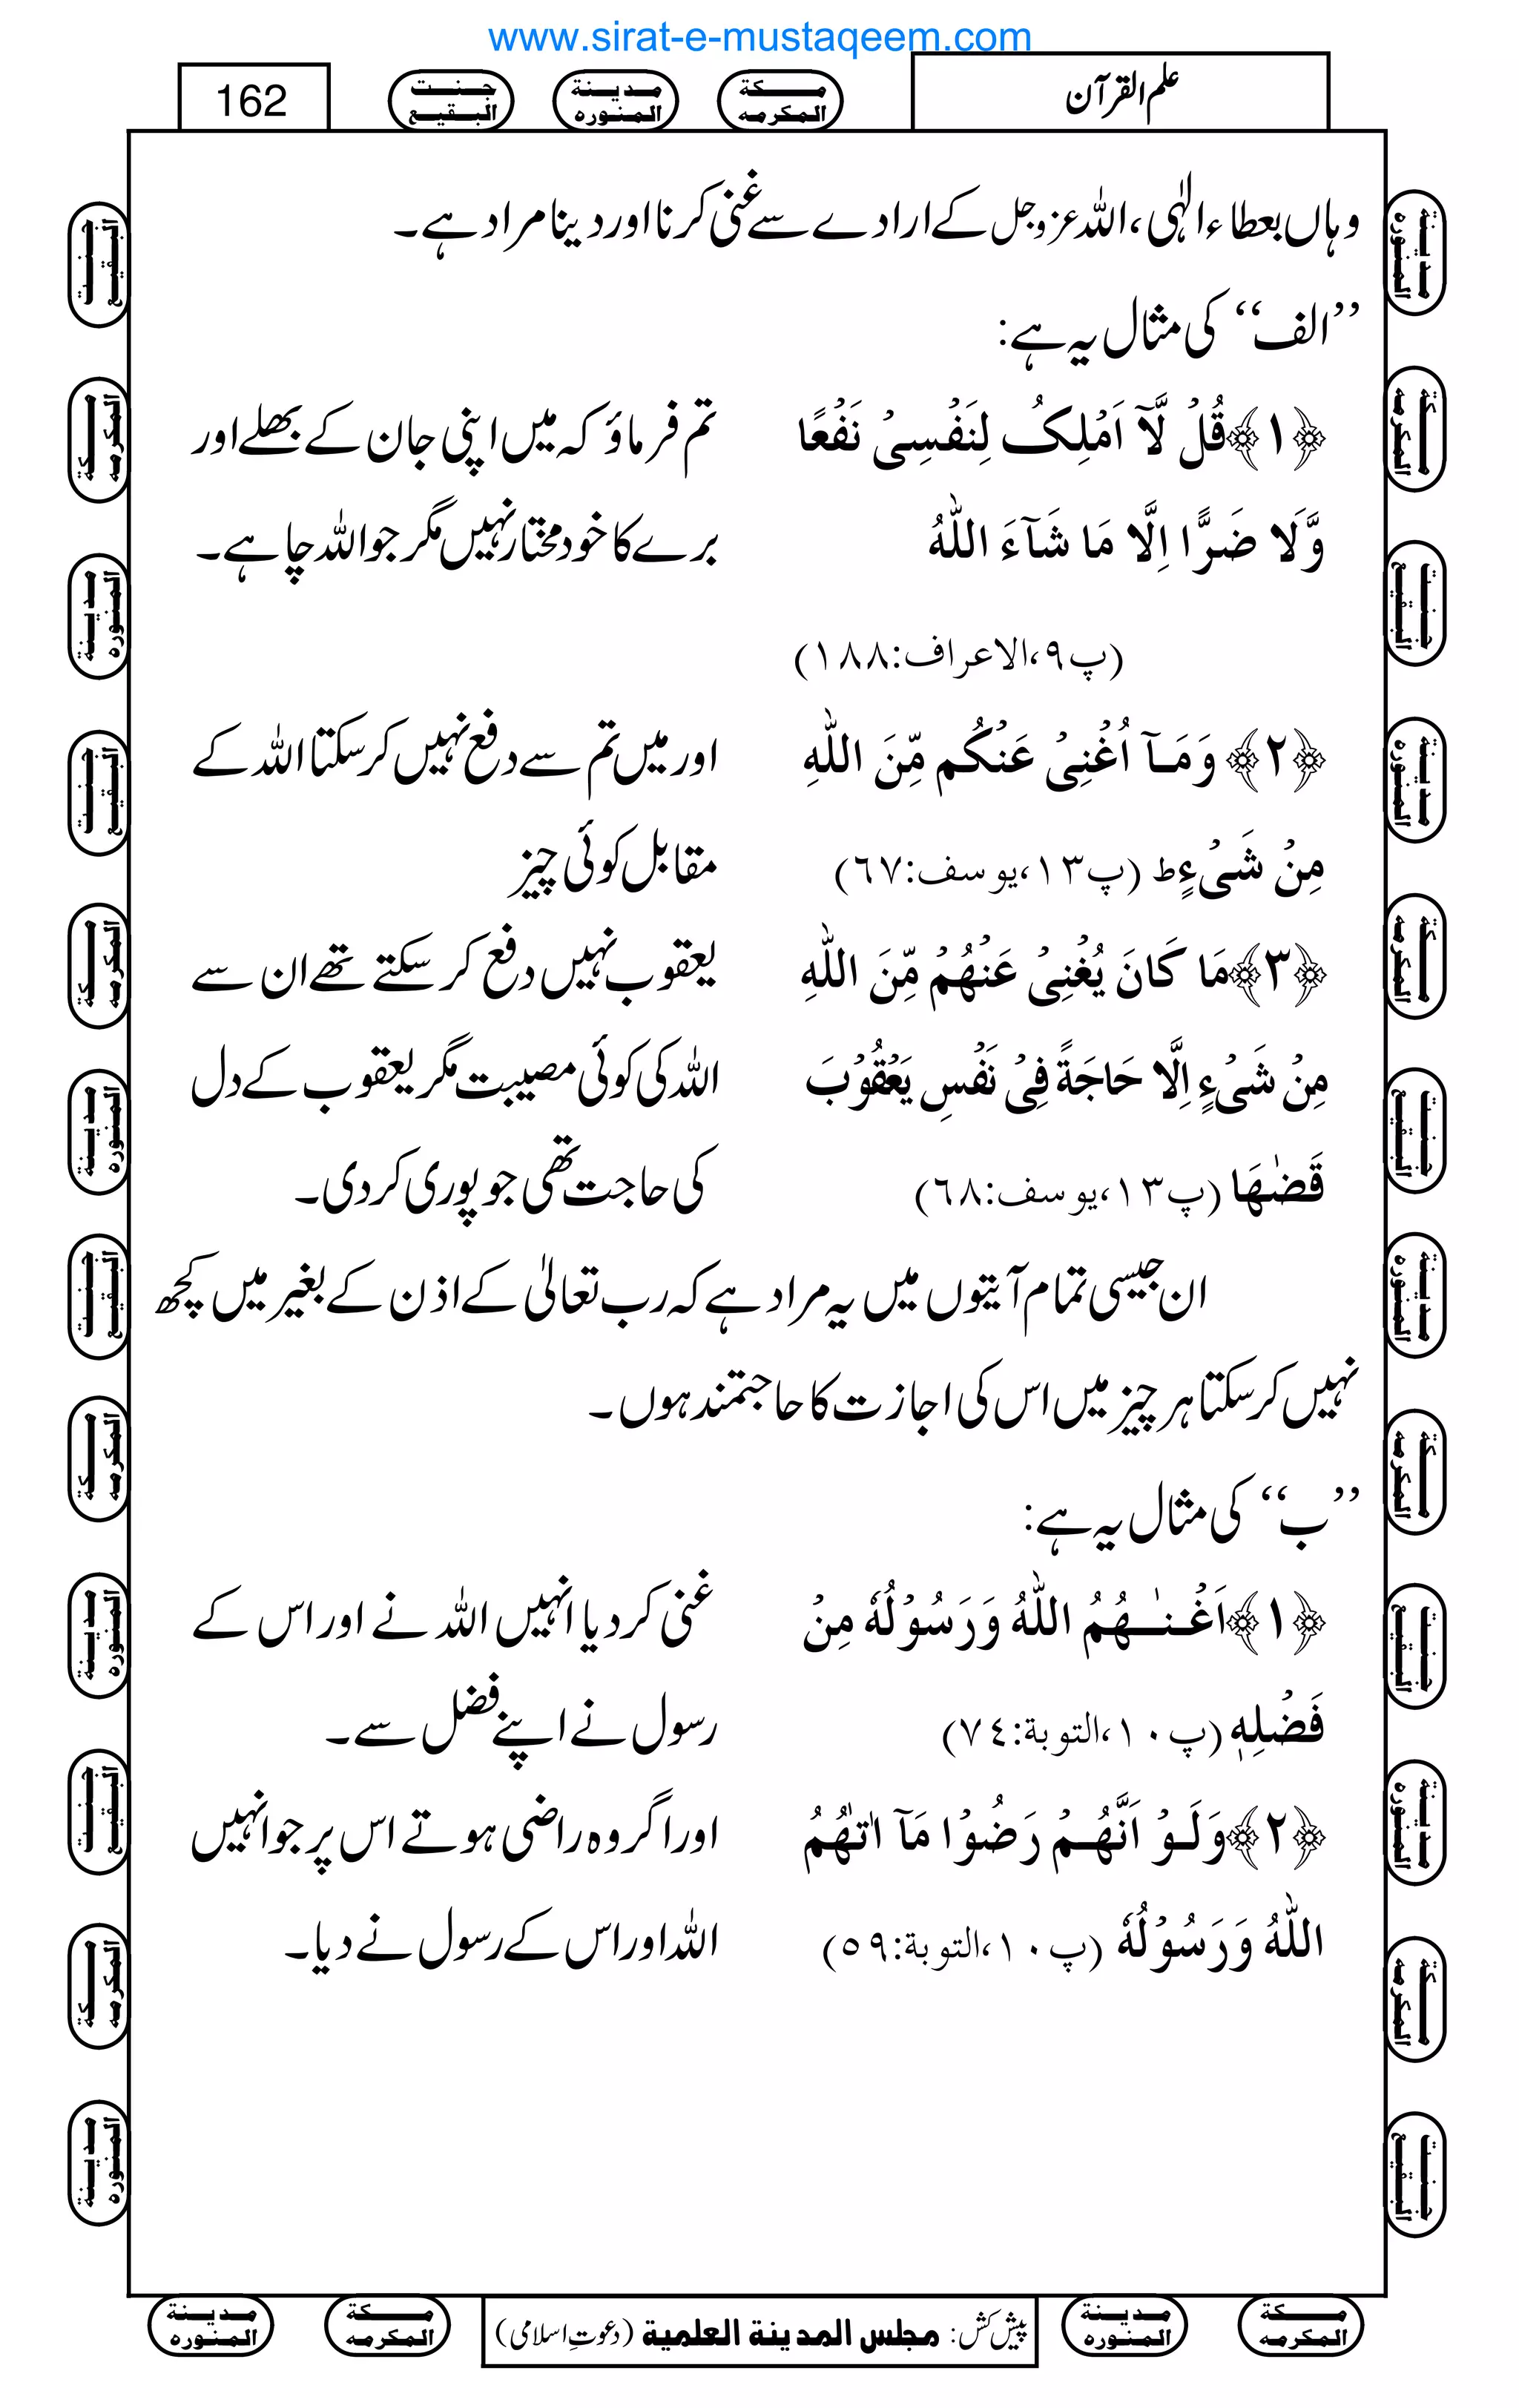 www.sirat-e-mustaqeem.com
علم القرآن
مكة المكرمه
مدينة المنوره
جنت البقيع
162
وہاں بعطاء الٰہی، اللہ عزوجل کے ارادے سے غنی کرنا اور دینا مراد ہے۔
’’الف‘‘ کی مثال یہ ہے:
﴿۱﴾ قُلْ لَّاۤ اَمْلِکُ لِنَفْسِیْ نَفْعًا تم فرماؤ کہ میں اپنی جان کے بھلے اور
وَّلَا ضَرًّا اِلَّا مَا شَآءَ اللهُ برے کا خود مختار نہیں مگر جو اللہ چاہے۔
(پ۹،الاعراف:۱۸۸)
﴿۲﴾ وَمَاۤ اُغْنِیْ عَنْكُم مِّنَ اللهِ اور میں تم سے دفع نہیں کرسکتا اللہ کے
مِنْ شَیْءٍ ط (پ۱۳،یوسف:٦٧) مقابل کوئی چیز
﴿۳﴾ مَا كَانَ یُغْنِیْ عَنْهُمْ مِّنَ اللهِ یعقوب نہیں دفع کر سکتے تھے ان سے
مِنْ شَیْءٍ اِلَّا حَاجَةً فِیْ نَفْسِ یَعْقُوْبَ اللہ کی کوئی مصیبت مگر یعقوب کے دل
قَضٰهَا (پ۱۳،یوسف:٦٨) کی حاجت تھی جو پوری کردی۔
ان جیسی تمام آیتوں میں یہ مراد ہے کہ رب تعالیٰ کے اذن کے بغیر میں کچھ
نہیں کرسکتا ہر چیز میں اس کی اجازت کا حاجتمند ہوں۔
’’ب‘‘ کی مثال یہ ہے:
﴿۱﴾ اَغْنٰهُمُ اللهُ وَرَسُوْلُهٗ مِنْ غنی کردیا انہیں اللہ نے اور اس کے
فَضْلِهٖ (پ۱۰،التوبة:٧٤) رسول نے اپنے فضل سے۔
﴿۲﴾ وَلَوْ اَنَّهُمْ رَضُوْا مَاۤ اٰتٰهُمُ اور اگر وہ راضی ہوتے اس پر جو انہیں
اللهُ وَرَسُوْلُهٗ (پ۱۰،التوبة:٥٩) اللہ اور اس کے رسول نے دیا۔
مكة المكرمه
مدينة المنوره
پیش کش: مجلس المدينة العلمية (دعوتِ اسلامی)
مكة المكرمه
مدينة المنوره